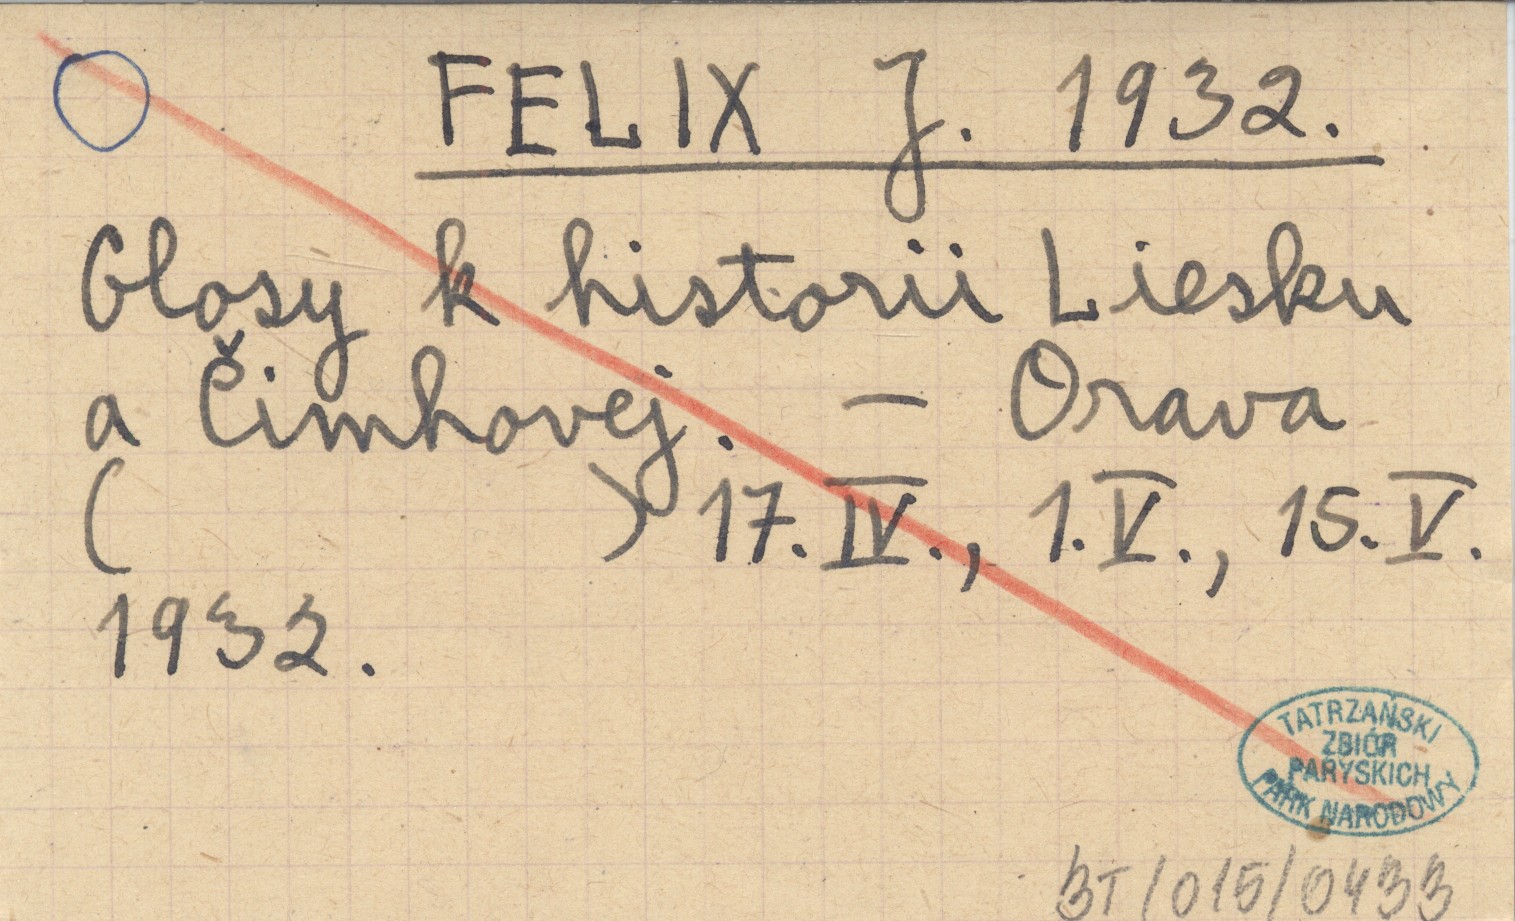 FELIX J. 1932.
Glosy k historii Liesku
a Čimhovej. – Orava
( ) 17. IV., 1. V., 15. V.
1932.
TATRZAŃSKI
ZBIÓR
PARYSKICH
PARK NARODOWY
BT/015/0433